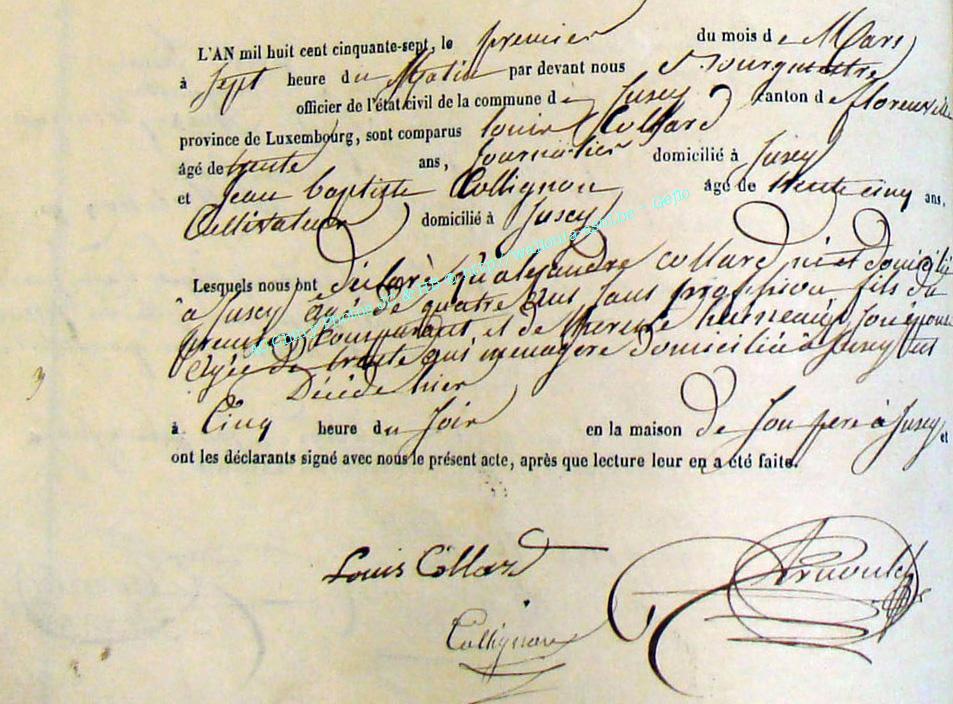 L'AN mil huit cent cinquante-sept, le premier du mois de Mars
à sept heure du Matin par devant nous Bourgmestre
officier de l'état civil de la commune de Jusey canton de florenville
province de Luxembourg, sont comparus louis Collard
âgé de trente ans, Journalier domicilié à Jusey
et jean baptiste Collignon âgé de trente cinq ans,
Cultivateur domicilié à Jusey
Lesquels nous ont déclaré qu'alexandre collard né et domicilié
à Jusey agé de quatre ans sans profession fils du
premier comparant et de therese son épouse
agée de trente menagere domiciliée à Jusey est
Décédé hier
à Cinq heure du soir en la maison de son père à Jusey et
ont les déclarants signé avec nous le présent acte, après que lecture leur en a été faite.
Louis Collard
Arnould
Collignon